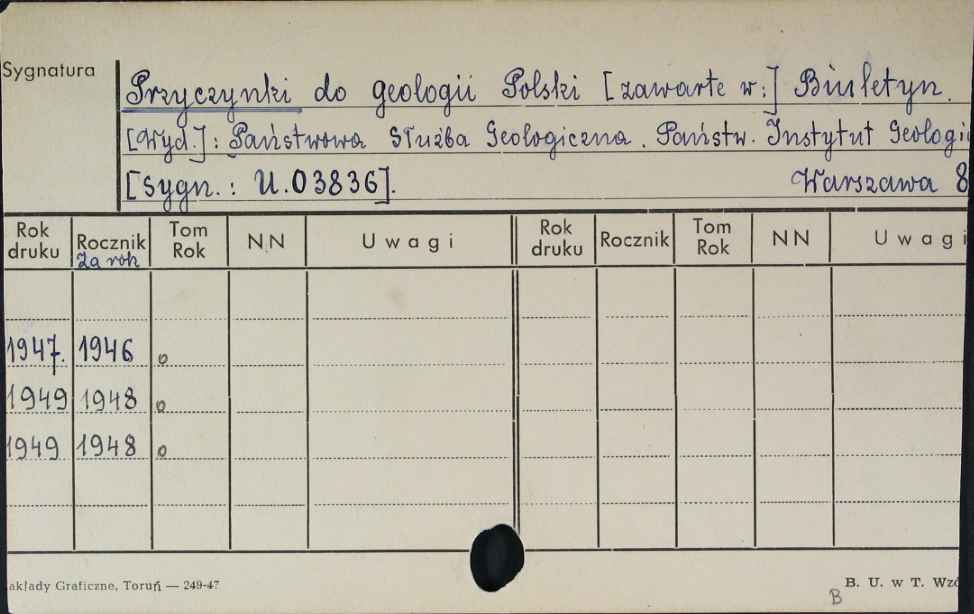 Sygnatura
Przyczynki do geologii Polski [zawarte w:] Biuletyn.
[Wyd.]: Państwowa Służba Geologiczna. Państw. Instytut Geologi
[sygn.: U.03836]. Warszawa 8
Rok druku Rocznik Za rok Tom Rok NN Uwagi Rok druku Rocznik Tom Rok NN Uwagi
1947. 1946 o
1949 1948 o
1949 1948 o
akłady Graficzne, Toruń — 249-47 B. U. w T. Wzó
B